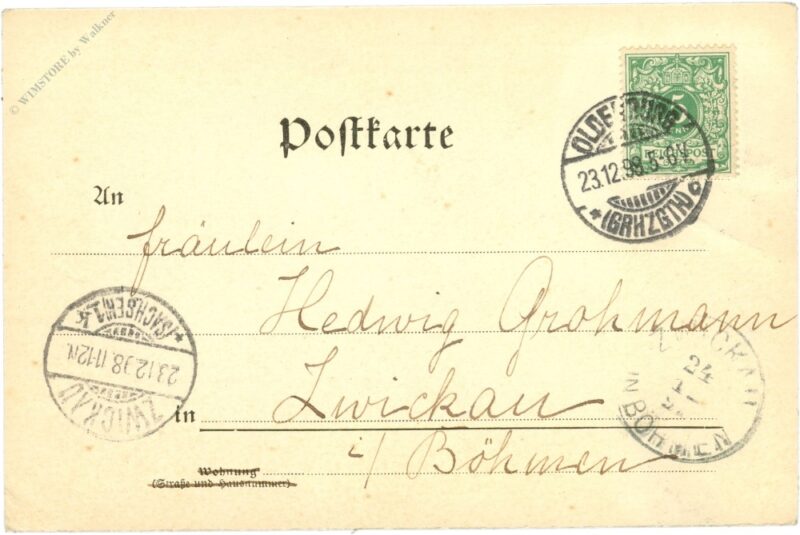 © WIMSTORE by Walkner
Postkarte
OLDENBURG
23.12.98.5-6N
*(GRHZGTH.)
An
Fräulein
Hedwig Grohmann
(SACHSEN)
23.12.98.11-12N.
ZWICKAU
ZWICKAU
24
IN BÖHMEN
in Zwickau
i/ Böhmen
Wohnung
(Straße und Hausnummer)